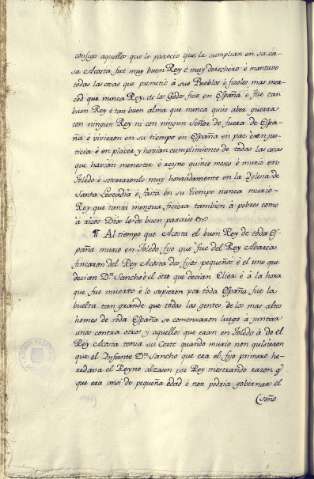 consigo aquellos que le parecio que le cumplian en su ca-
sa Acosta, fue muy buen Rey é muy derechero é mantuvo
todas las cosas que prometió á sus Pueblos é fizoles mas mer-
ced que nunca Rey de los Godos fizo en España é fue tan
buen Rey é tan buen alma que nunca quiso aber guerra
con ningun Rey ni con ningun Señor de fuera de Espa-
ña é vivieron en su tiempo en España en paz é en jus-
ticia é en placer é havian cumplimiento de todas las cosas
que havian menester é reyno quince años é murió en
Toledo é soterraronlo muy honradamente en la Yglesia de
Santa Leocadia é, fasta en su tiempo nunca murio
Rey que tanto menos ficiera tambien á pobres como
á ricos Dios le dé buen paraiso
¶ Al tiempo que Acosta el buen Rey de toda Es-
paña murio en Toledo, fijo que fue del Rey Abarca
fincaron del Rey Acosta dos fijos pequeños é el uno que
decian Dn Sancho é el otro que decian Elier é á la hora
que fue muerto é lo supieron por toda España, fue la
buelta tan grande que todas las gentes de los mas altos
homes de toda España se comenzaron luego á juntar
unos contra otros, y aquellos que eran en Toledo á do el
Rey Acosta tenia su Corte quando murio non quisieron
que el Ynfante Dn Sancho que era el fijo primero he-
redara el Reyno alzaron por Rey mostrando razon q
que era ome de pequeña edad é non podria gobernar el
Reyno